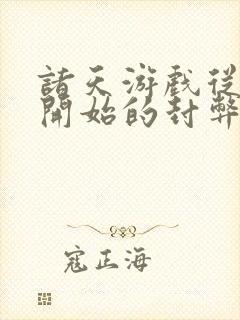 諸天游戲從
開始的封弊
寇正海